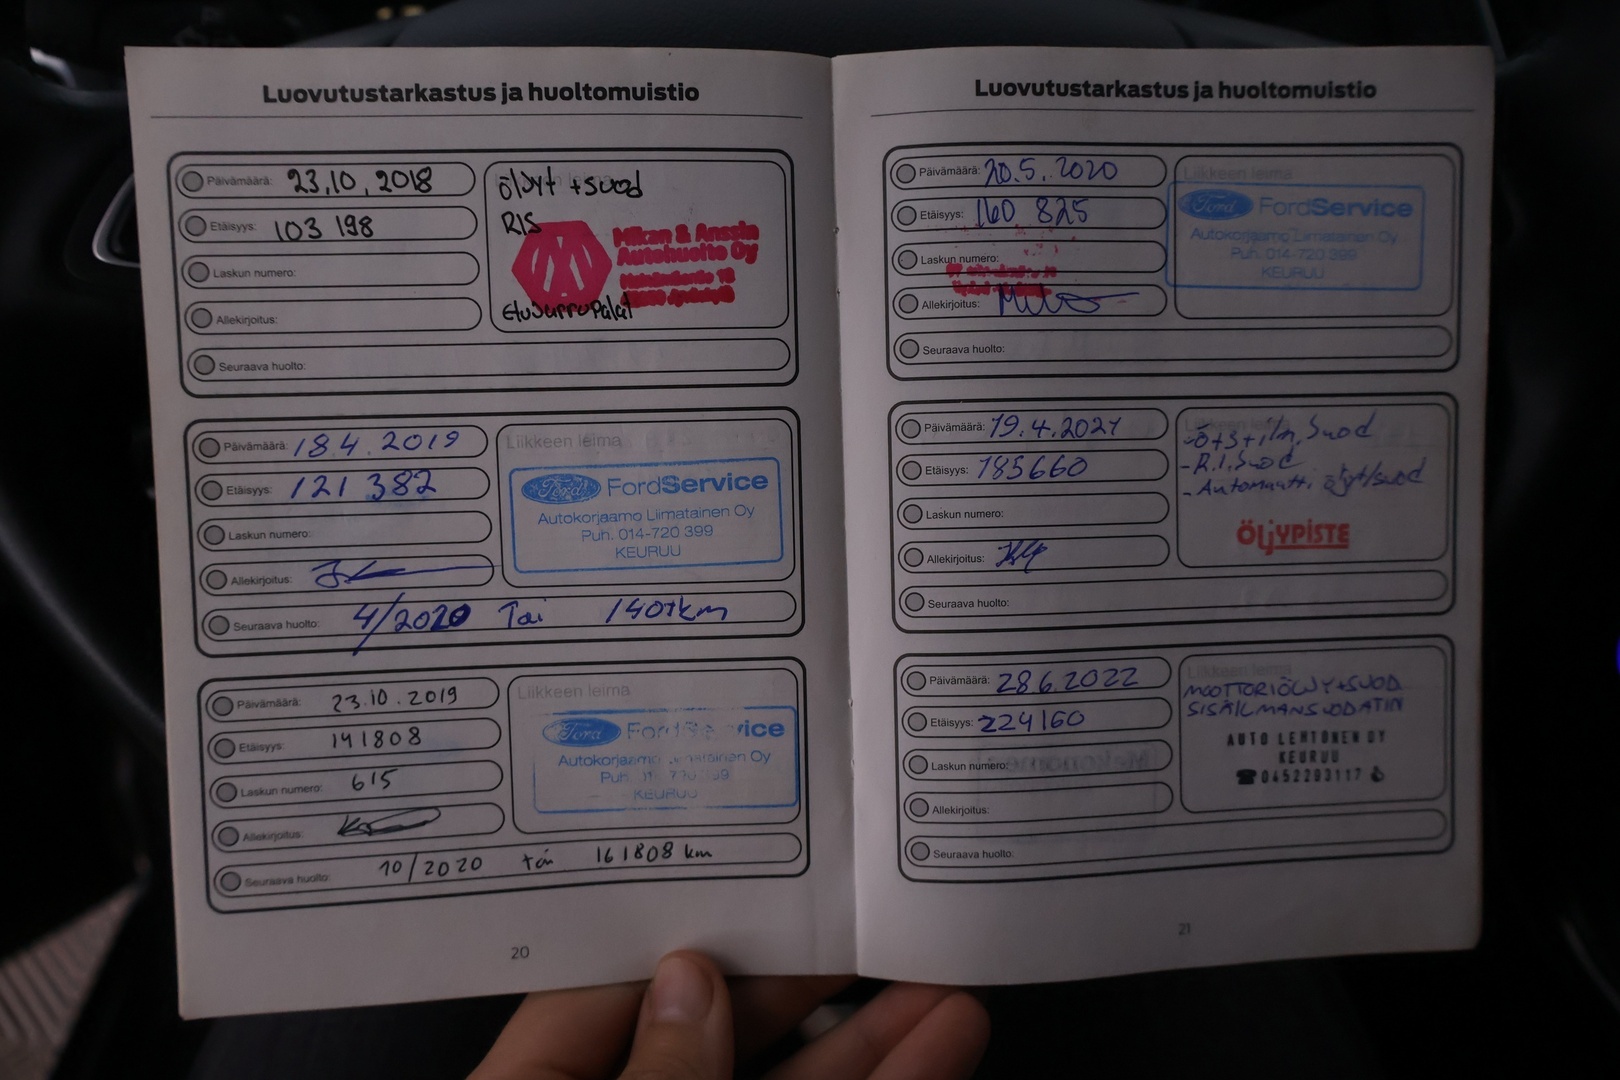 Luovutustarkastus ja huoltomuistio
Päivämäärä: 23.10.2018
Etäisyys: 103 198
Laskun numero:
Allekirjoitus:
Seuraava huolto:
öljyt +suod
RIS
Mikan & Anssin
Autohuolto Oy
Etujarrupalat
Päivämäärä: 18.4.2019
Etäisyys: 121 382
Laskun numero:
Allekirjoitus:
Seuraava huolto: 4/2020 Tai 140tkm
Liikkeen leima
Ford FordService
Autokorjaamo Liimatainen Oy
Puh. 014-720 399
KEURUU
Päivämäärä: 23.10.2019
Etäisyys: 141808
Laskun numero: 615
Allekirjoitus:
Seuraava huolto: 10/2020 tai 161808 km
Liikkeen leima
Ford FordService
Autokorjaamo Liimatainen Oy
KEURUU
20
Luovutustarkastus ja huoltomuistio
Päivämäärä: 20.5.2020
Etäisyys: 160 825
Laskun numero:
Allekirjoitus:
Seuraava huolto:
Liikkeen leima
Ford FordService
Autokorjaamo Liimatainen Oy
Puh. 014-720 399
KEURUU
Päivämäärä: 19.4.2021
Etäisyys: 185660
Laskun numero:
Allekirjoitus:
Seuraava huolto:
-Ö+S+ilm.suod
-R.I.Suod
-Automaatti öljyt/suod
ÖLJYPISTE
Päivämäärä: 28.6.2022
Etäisyys: 224160
Laskun numero:
Allekirjoitus:
Seuraava huolto:
Liikkeen leima
MOOTTORIÖLJY+SUOD
SISÄILMANSUODATIN
AUTO LEHTONEN OY
KEURUU
☎0452293117
21